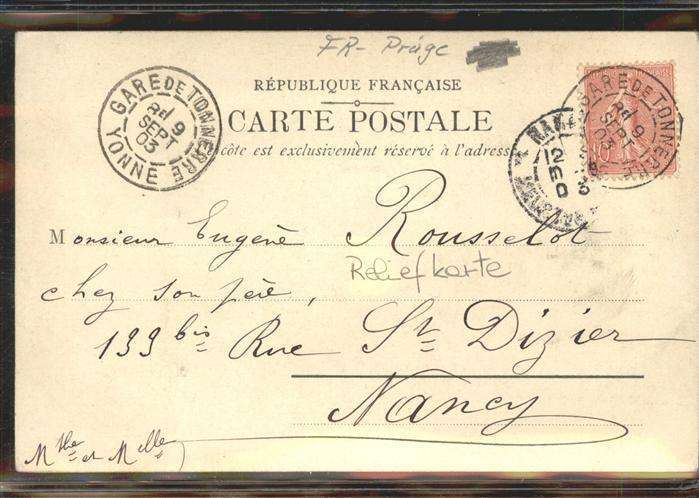 FR- Präge
RÉPUBLIQUE FRANÇAISE
CARTE POSTALE
côte est exclusivement réservé à l'adresse
GARE DE TONNERRE
9
SEPT
03
YONNE
GARE DE TONNERRE
9
SEPT
03
Monsieur Eugène Rousselot
Reliefkarte
chez son père,
133 bis Rue St Dizier
Nancy
Mthe et Melle